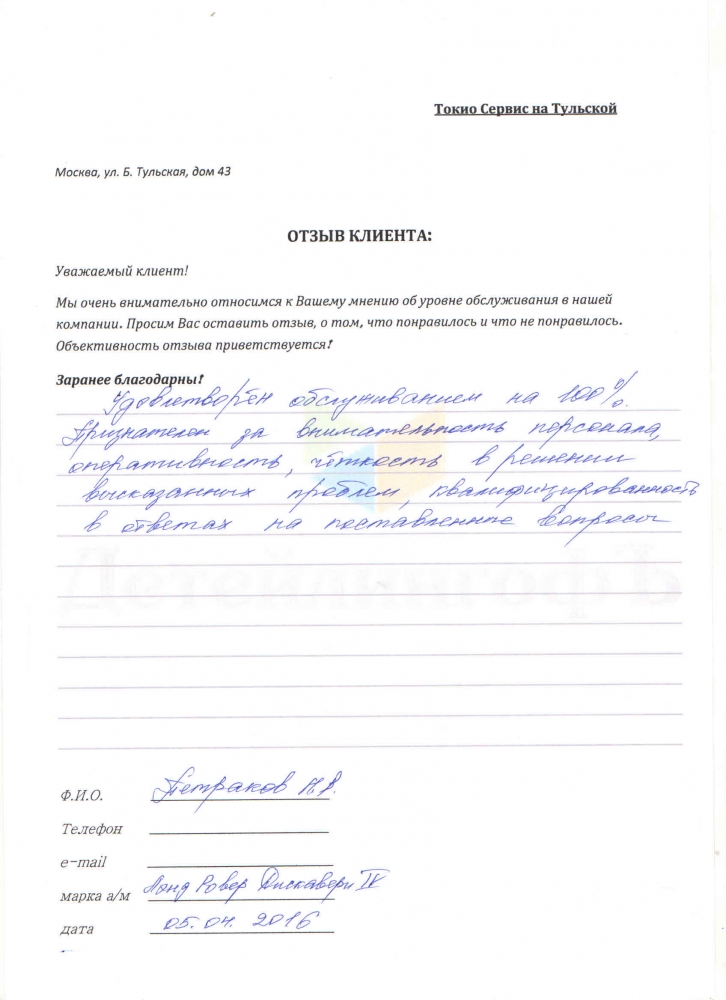 Токио Сервис на Тульской
Москва, ул. Б. Тульская, дом 43
ОТЗЫВ КЛИЕНТА:
Уважаемый клиент!
Мы очень внимательно относимся к Вашему мнению об уровне обслуживания в нашей
компании. Просим Вас оставить отзыв, о том, что понравилось и что не понравилось.
Объективность отзыва приветствуется!
Заранее благодарны!
Удовлетворён обслуживанием на 100%.
Признателен за внимательность персонала,
оперативность, чёткость в решении
высказанных проблем, квалифицированность
в ответах на поставленные вопросы
Ф.И.О. Петраков
Телефон
e-mail
марка а/м Лэнд Ровер Дискавери IV
дата 05.04. 2016